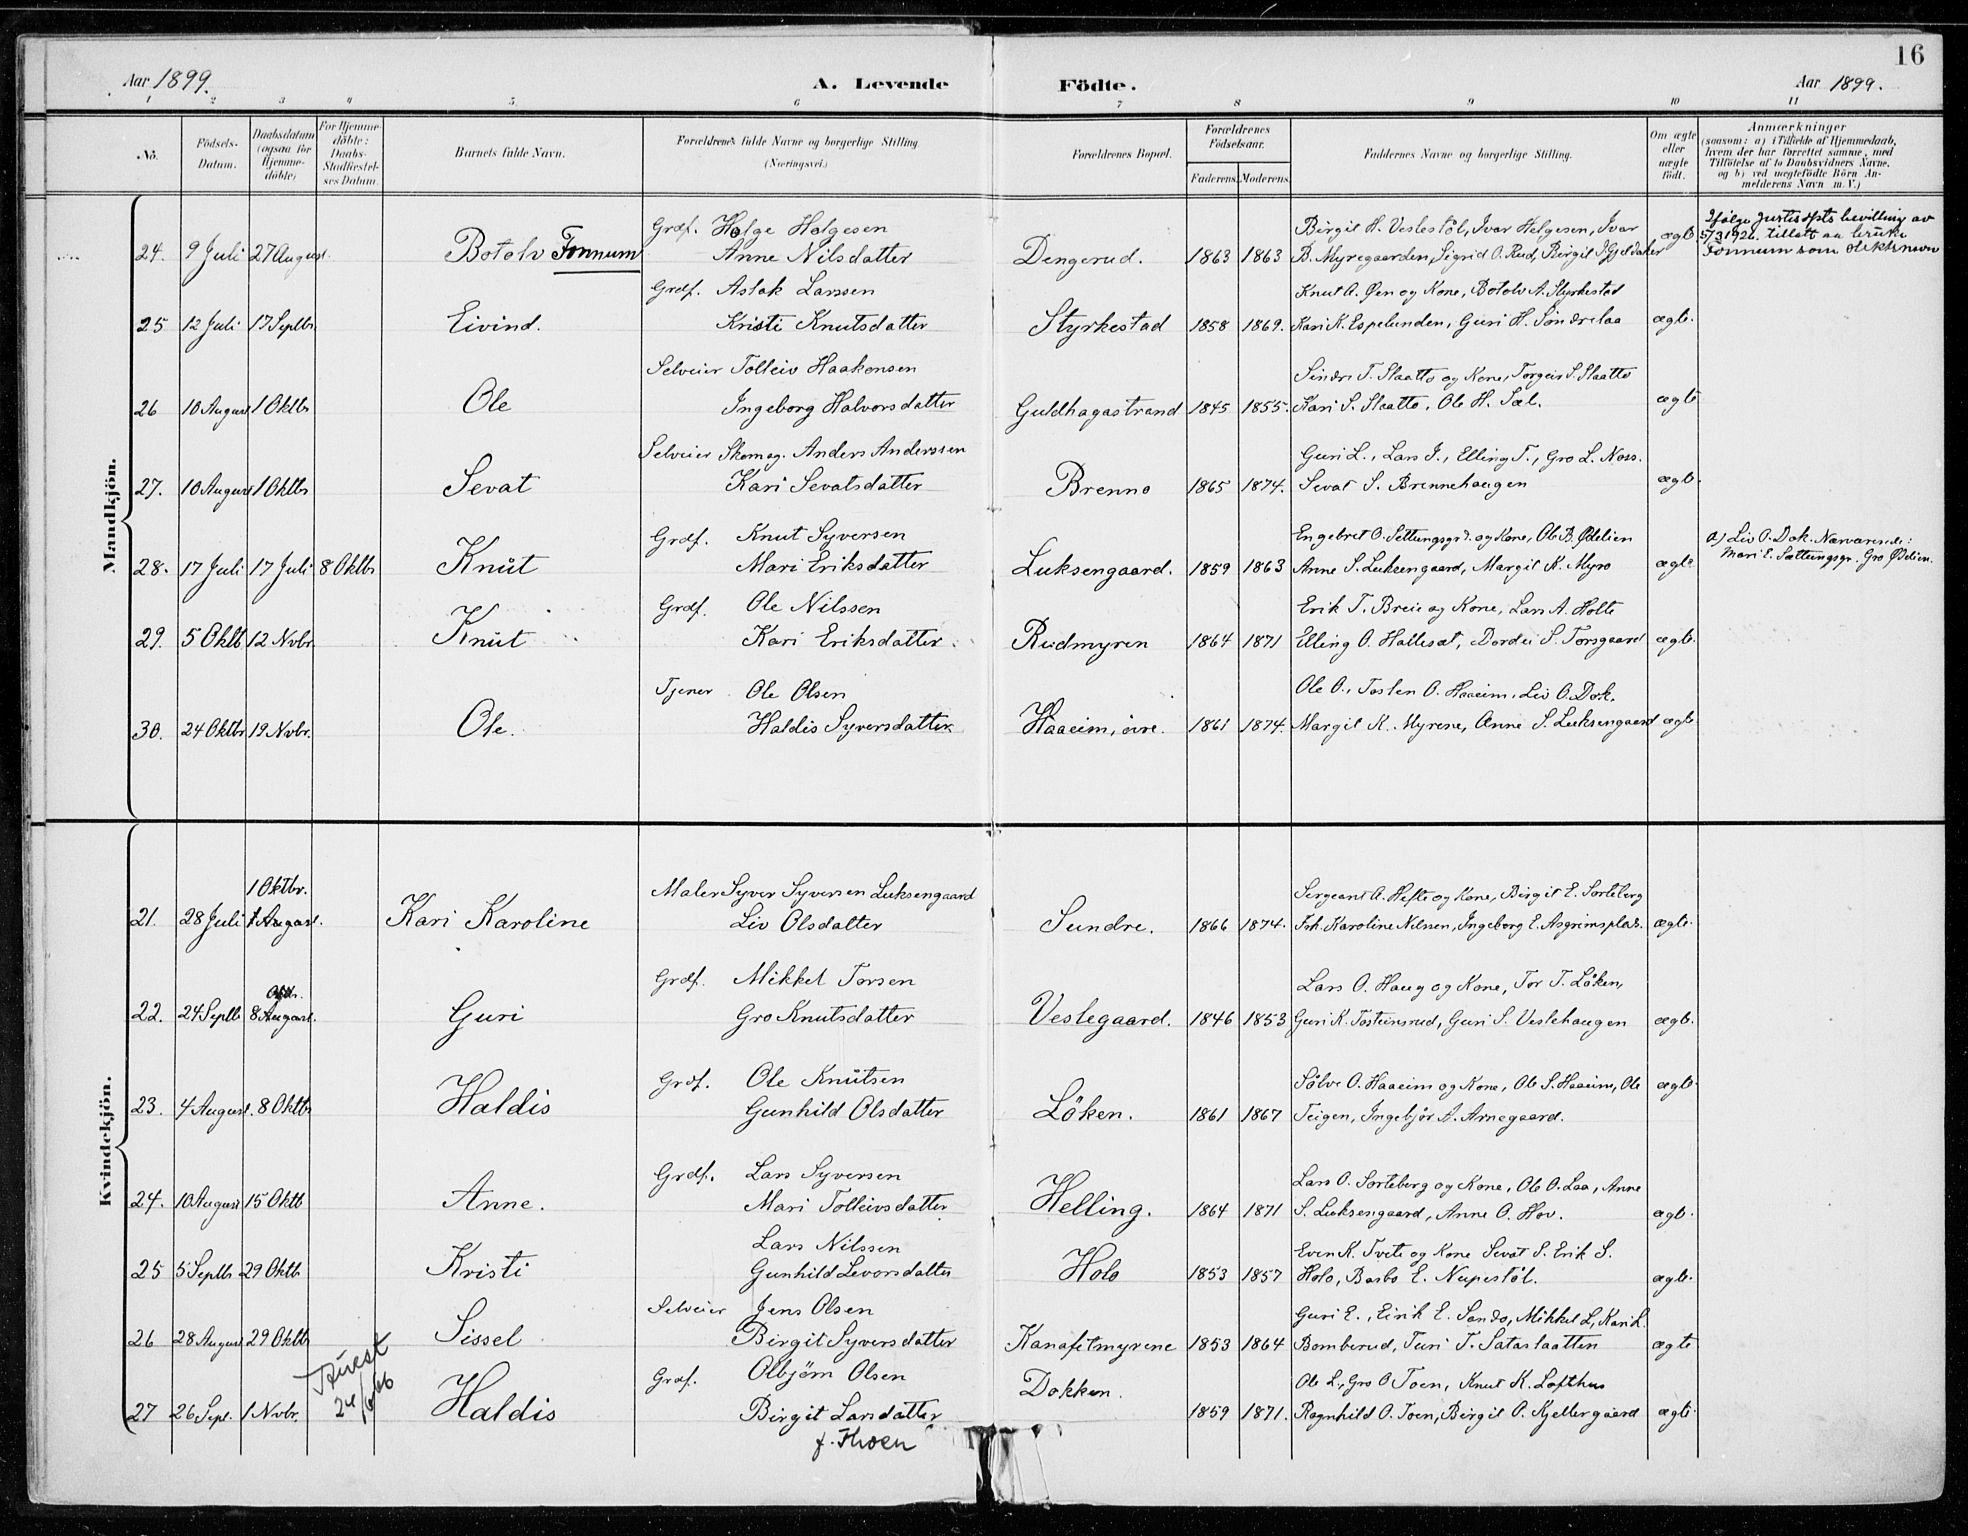 16
Aar 1899. A. Levende Födte. Aar 1899.
1 2 3 4 5 6 7 8 9 10 11
No. Födsels-Datum. Daabsdatum (ogsaa for Hjemme-döbte) For Hjemme-döbte: Daabs-Stadfæstel-ses Datum. Barnets fulde Navn. Forældrenes fulde Navne og borgerlige Stilling (Næringsvei.) Forældrenes Bopæl. Forældrenes Födselsaar. Faderens. Moderens. Faddernes Navne og borgerlige Stilling. Om ægte eller uægte födt. Anmærkninger (saasom: a) i Tilfælde af Hjemmedaab, hvem der har forrettet samme, med Tilföielse af to Daabsvidners Navne, og b) ved uægtefödte Börn An-melderens Navn m. V.)
Mandkjön.
Grdf. Helge Helgesen Birgit H. Veslestöl, Ivar Helgesen, Ivar Ifölge Justisdpts bevilling av
24. 9 Juli 27 August Botolv Fonnum Anne Nilsdatter Dengerud. 1863 1863 B. Myregaarden, Sigrid O. Rud, Birgit I. Gjeldaker ægte 5/3 1926 tillatt aa bruke
Fonnum som slektsnavn
Grdf. Aslak Larssen Knut A. Øen og Kone, Botolv A. Styrkestad
25 12 Juli 17 Septbr. Eivind. Kristi Knutsdatter Styrkestad 1858 1869. Kari K. Espelunden, Guri H. Söndrelaa ægte.
Selveier Tolleiv Haakonsen Sindre T. Slaatto og Kone, Torgeir S. Slaatto
26 10 August 1 Oktbr Ole Ingeborg Halvorsdatter Guldhagastrand 1845 1855. Kari S. Slaatto, Ole H. Sæl. ægte
Selveier Skomag. Anders Anderssen Guri L., Lars I., Elling T., Gro L. Noss.
27. 10 August 1 Oktbr Sevat Kari Sevatsdatter Brenno 1865 1874. Sevat S. Brennehaugen ægte.
Grdf. Knut Syversen Engebret O. Settungsgrd. og Kone, Ole B. Ødelien a) Liv O. Dok. Nærværende:
28. 17 Juli 17 Juli 8 Oktbr Knut Mari Eriksdatter Luksengaard. 1859 1863 Anne S. Luksengaard, Margit K. Myro ægte Mari E. Sættungsgr. Gro Ødelien.
Grdf. Ole Nilssen Erik T. Breie og Kone, Lars A. Holto
29. 5 Oktb 12 Nvbr. Knut Kari Eriksdatter. Rudmyren 1864 1871 Elling O. Hallesat, Dordei S. Torsgaard ægte.
Tjener Ole Olsen Ole O., Tosten O. Haaeim, Liv O. Dok.
30. 24 Oktbr 19 Nvbr. Ole. Haldis Syversdatter Haaeim, övre. 1861 1874. Margit K. Myrene, Anne S. Luksengaard ægte
Kvindekjön.
1 Oktbr. Maler Syver Syversen Luksengaard Sergeant A. Hefte og Kone, Birgit E. Sorteberg
21. 28 Juli 1 August. Kari Karoline Liv Olsdatter Sundre. 1866 1874. Frk. Karoline Nilsen, Ingeborg E. Asgrimsplads. ægte.
Oktbr. Grdf. Mikkel Torsen Lars O. Haug og Kone, Tor T. Löken,
22. 24 Septb 8 August. Guri Gro Knutsdatter Veslegaard. 1846 1853 Guri K. Tosteinsrud, Guri S. Veslehaugen ægte.
Grdf. Ole Knutsen Sölve O. Haaeim og Kone, Ole S. Haaeim, Ole ægte.
23. 4 August. 8 Oktbr Haldis Gunhild Olsdatter Löken. 1861 1867 Teigen, Ingebjör A. Arnegaard.
Grdf. Lars Syversen Lars O. Sorteberg og Kone, Ole O. Laa, Anne
24. 10 August 15 Oktb Anne. Mari Tolleivsdatter Helling. 1864 1871 S. Luksengaard, Anne O. Hov. ægte.
Lars Nilssen Even K. Tveto og Kone Sevat S. Erik S.
25 5 Septb 29 Oktb Kristi Gunhild Levorsdatter Holo 1853 1857 Holo, Barbo E. Nupestöl. ægte.
Selveier Jens Olsen Guri E., Eirik E. Sando, Mikkel L, Kari K.
26 28 August 29 Oktbr Sissel Birgit Syversdatter Kanafetmyrene 1853 1864 Bomberud, Turi T. Sataslaatten ægte
Attest 24/6 66 Grdf. Olbjörn Olsen Dokken. Ole L., Gro O Toen, Knut K. Lofthus
27 26 Sept. 1 Nvbr. Haldis Birgit Larsdatter 1859 1871. Ragnhild O. Toen, Birgit O. Kjellergaard ægte
f. Thoen